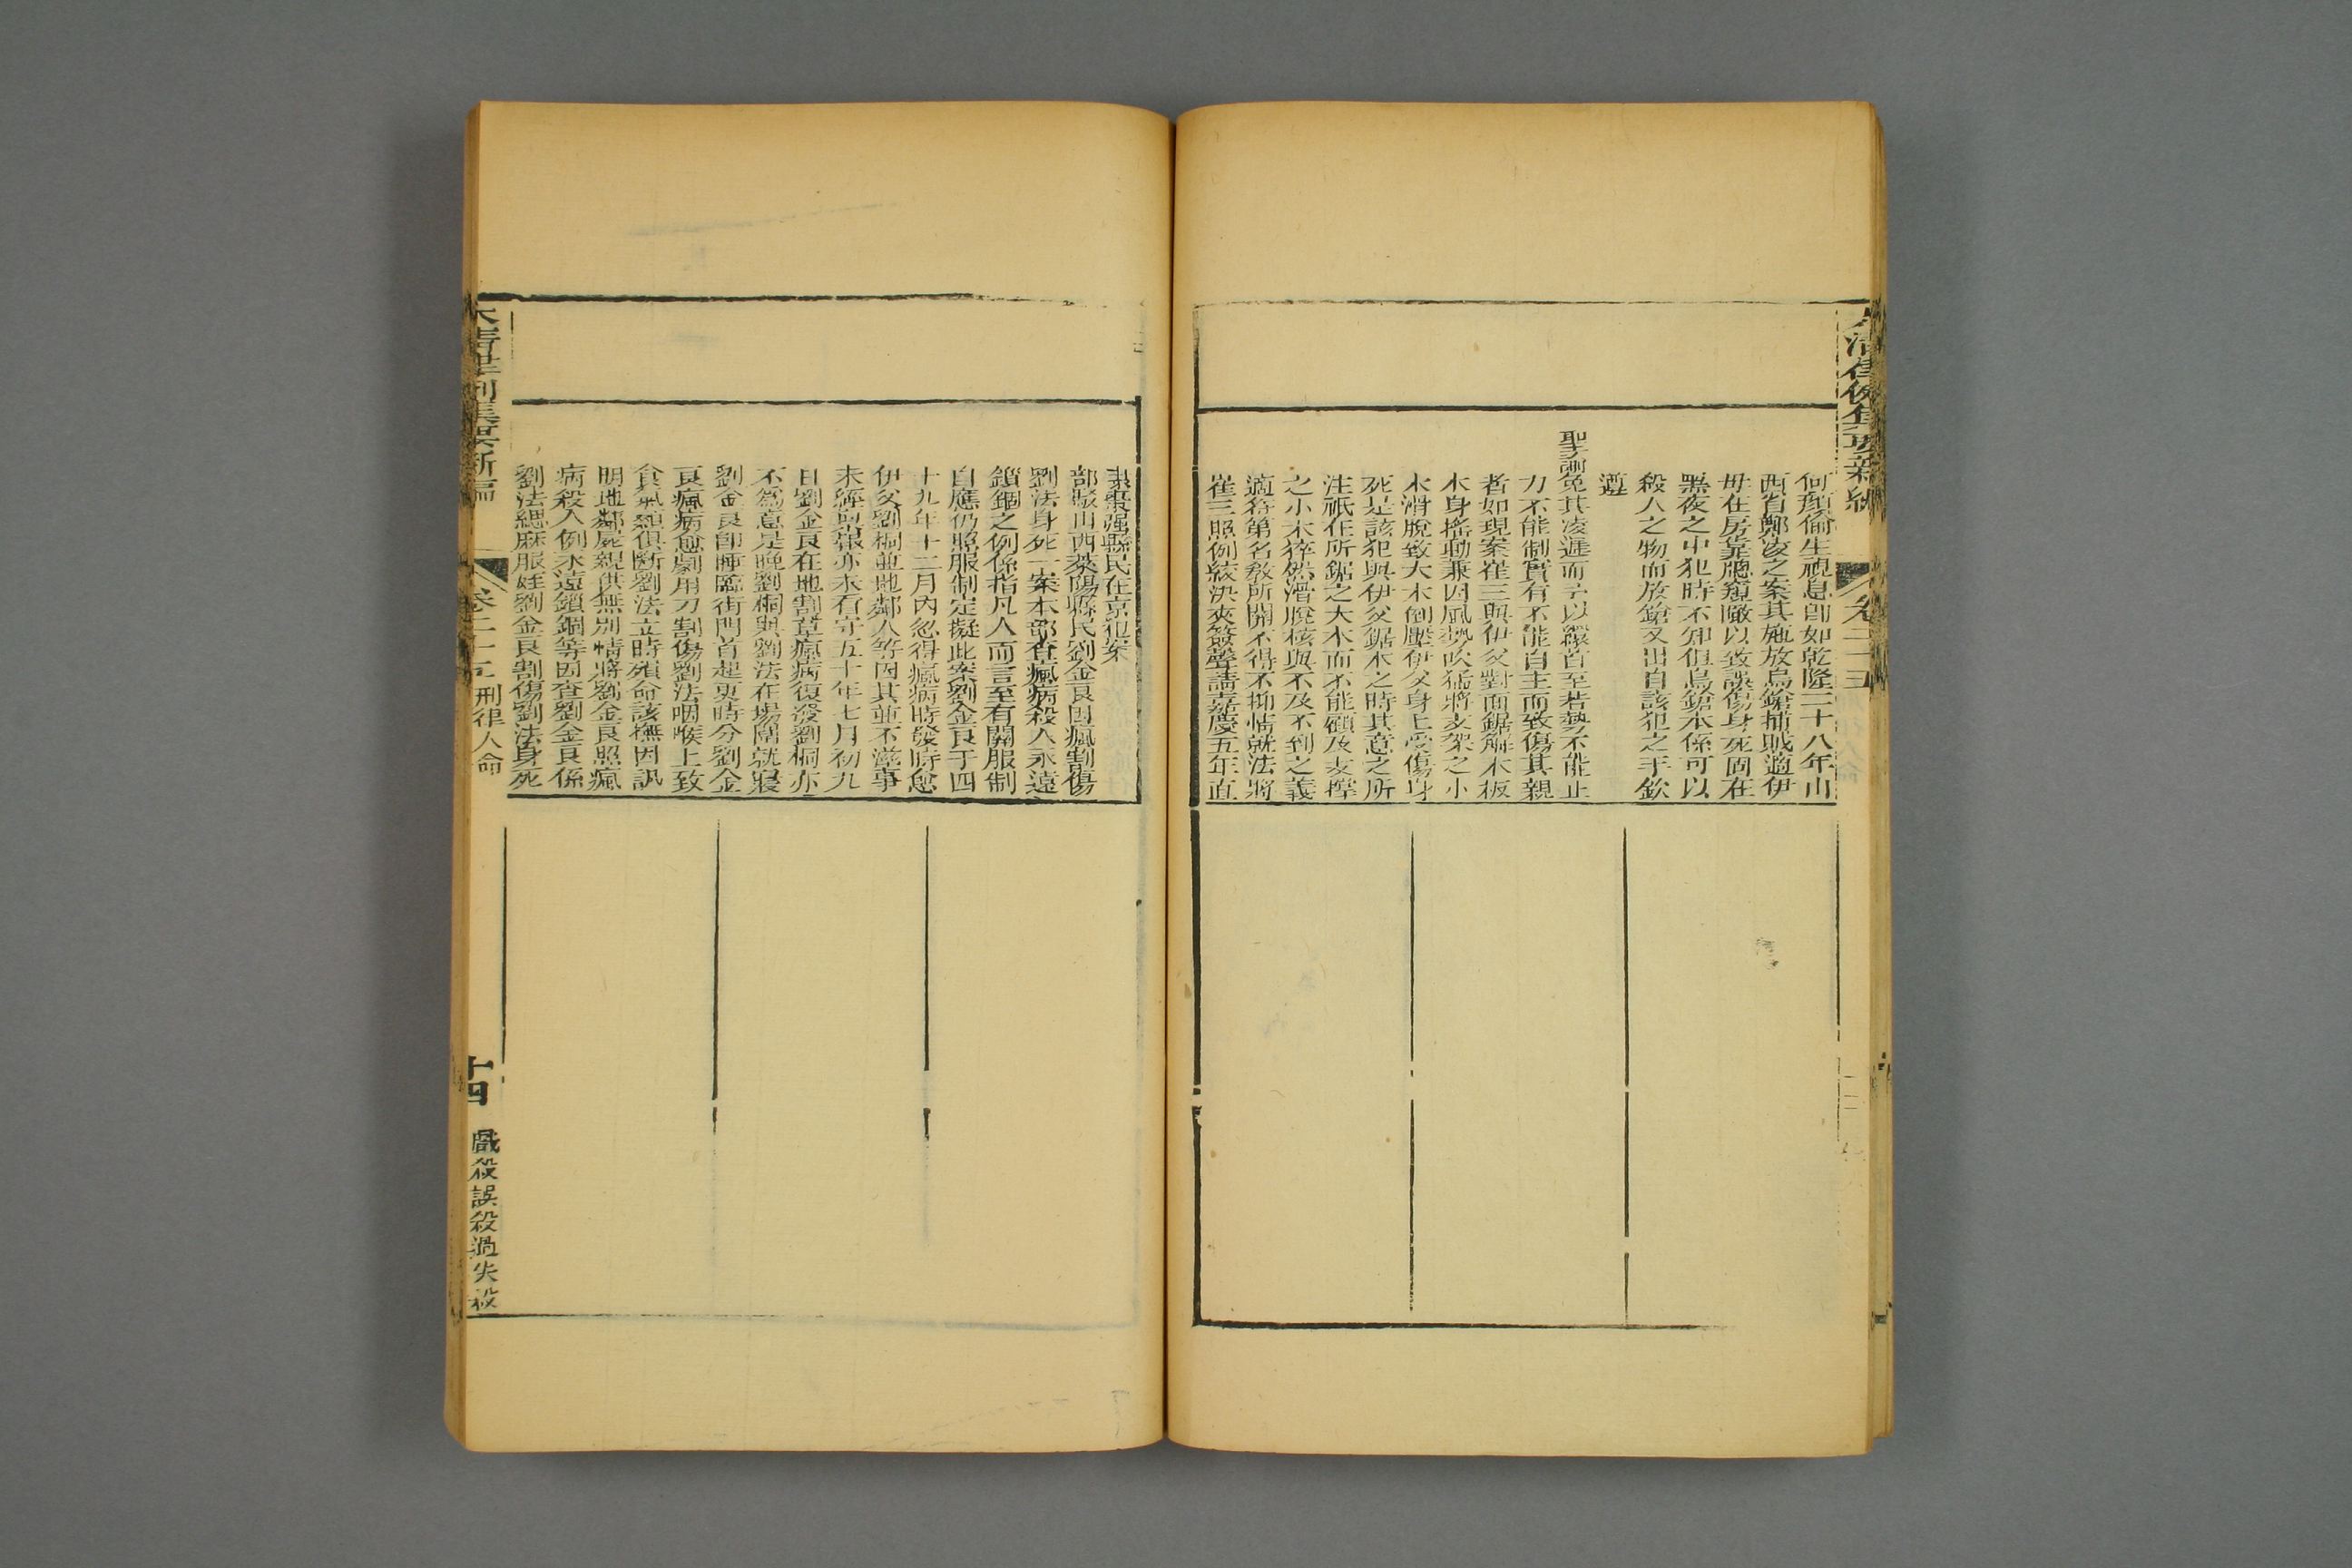 大清律例集要新編
卷二十五
何顏偷生視息卽如乾隆二十八年山
西省鄭凌之案其施放鳥鎗捕賊適伊
母在房靠牕窺瞰以致誤傷身死固在
黑夜之中犯時不知但鳥鎗本係可以
殺人之物而放鎗又出自該犯之手欽
遵
聖諭免其凌遲而予以繯首至若勢不能止
力不能制實有不能自主而致傷其親
者如現案崔三與伊父對面鋸解木板
木身搖動兼因風勢吹猛將支架之小
木滑脫致大木倒壓伊父身上受傷身
死是該犯與伊父鋸木之時其意之所
注祇在所鋸之大木而不能顧及支撐
之小木猝然滑脫核與不及不到之義
適符第名教所關不得不抑情就法將
崔三照例絞決夾簽聲請嘉慶五年直
隸棗强縣民在京犯案
部駁山西萊陽縣民劉金良因瘋割傷
劉法身死一案本部查瘋病殺人永遠
鎖錮之例係指凡人而言至有關服制
自應仍照服制定擬此案劉金良于四
十九年十二月內忽得瘋病時發時愈
伊父劉桐並地鄰人等因其並不滋事
未經具報亦未看守五十年七月初九
日劉金良在地割草瘋病復發劉桐亦
不爲意是晚劉桐與劉法在場園就寢
劉金良卽睡臨街門首起更時分劉金
良瘋病愈劇用刀割傷劉法咽喉上致
食氣顙俱斷劉法立時殞命該撫因訊
明地鄰屍親供無別情將劉金良照瘋
病殺人例永遠鎖錮等因查劉金良係
劉法緦麻服姪劉金良割傷劉法身死
大清律例集要新編
卷二十五
刑律人命
十四
戲殺誤殺過失殺